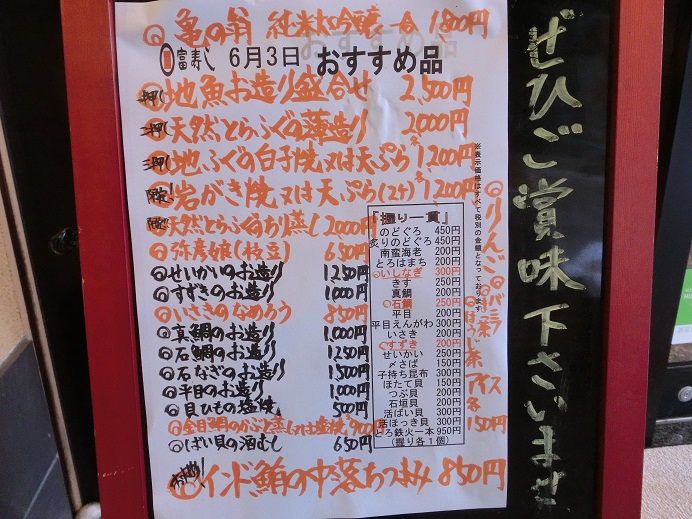 亀の翁 純米大吟醸一合 1,800円
富寿し 6月3日 おすすめ品
一押し! 地魚お造り盛合せ 2,500円
二押し! 天然とらふぐの薄造り 2,000円
三押し! 地ふぐの白子焼又は天ぷら 各1,200円
限定! 岩がき焼又は天ぷら(2ケ) 各1,200円
限定! 天然とらふぐちり蒸し 2,000円
弥彦娘(枝豆) 650円
せいかいのお造り 1,250円
すずきのお造り 1,000円
いさきのなめろう 850円
真鯛のお造り 1,000円
石鯛のお造り 1,250円
石なぎのお造り 1,500円
平目のお造り 1,000円
貝ひもの塩焼 500円
金目鯛のかぶと蒸し又は塩焼 900円
ばい貝の酒むし 650円
インド鮪の中落ちつまみ 850円
『握り一貫』
のどぐろ 450円
炙りのどぐろ 450円
南蛮海老 200円
とろはまち 200円
いしなぎ 300円
きす 250円
真鯛 200円
石鯛 250円
平目 200円
平目えんがわ 300円
いさき 200円
すずき 200円
せいかい 250円
〆さば 150円
子持ち昆布 300円
ほたて貝 150円
つぶ貝 200円
石垣貝 200円
活ばい貝 300円
活ほっき貝 300円
とろ鉄火一本 950円
(握り各1個)
※表示価格はすべて税別の金額となっております
りんご
バニラ
ほうじ茶
アイス 各150円
ぜひご賞味下さいませ